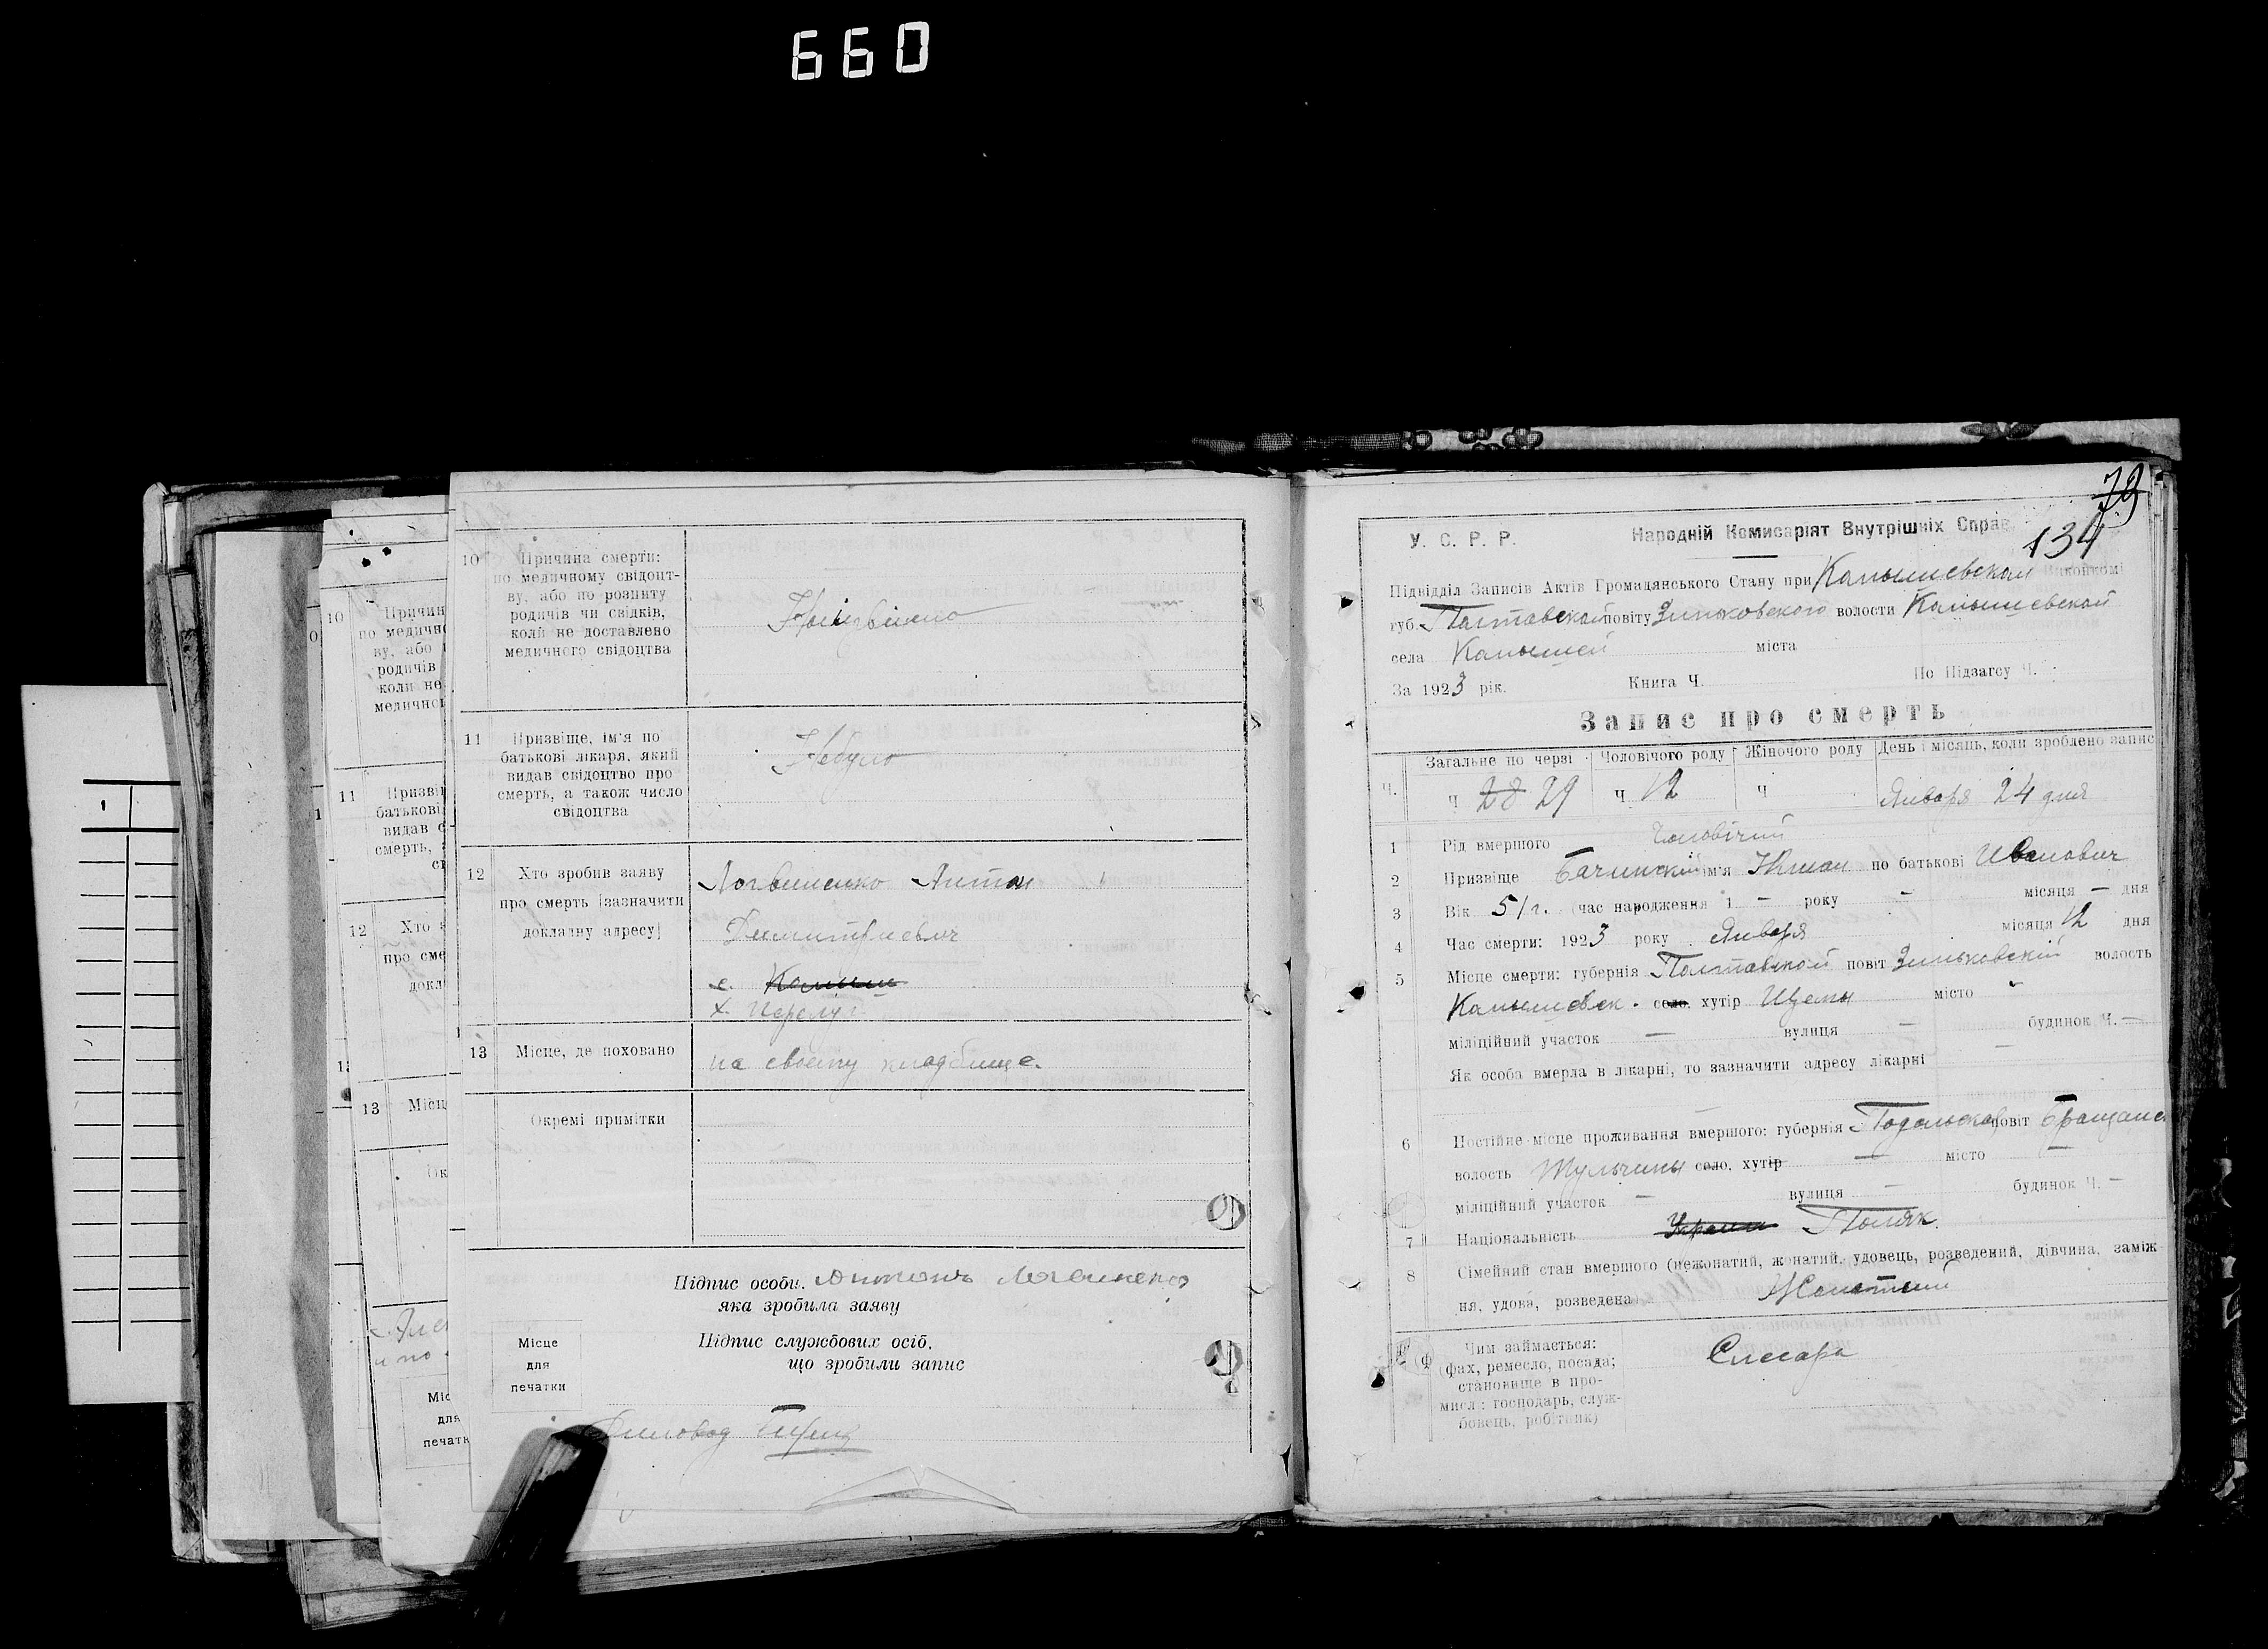 660
10 Причина смерти:
по медичному свідоцт-
ву, або по розпиту
родичів чи свідків,
коли не доставлено
медичного свідоцтва
11 Призвіще, ім'я по
батькові лікаря, який
видав свідоцтво про
смерть, а також число
свідоцтва
Небуло
12 Хто зробив заяву
про смерть (зазначити
докладну адресу)
Логвиненко Антон
Дмитриевич
с. Камыши
х.
13 Місце, де поховано
на своему кладбище.
Окремі примітки
Підпис особи, Антонъ Логвиненко
яка зробила заяву
Місце
для
печатки
Підпис службових осіб,
що зробили запис
Диловод
79
134
У. С. Р. Р. Народній Комисаріят Внутрішніх Справ
Підвідділ Записів Актів Громадянського Стану при Камышевском Виконкомі
губ. Полтавской повіту Зиньковского волости Камышевской
села Камышей міста
За 1923 рік. Книга Ч. По Підзагсу Ч.
Запис про смерть
Ч. Загальне по черзі Чоловічого роду Жіночого роду День і місяць, коли зроблено запис
Ч 28 29 Ч 12 Ч Января 24 дня
1 Рід вмершого Чоловічий
2 Призвіще Бачинский ім'я по батькові Иванович
3 Вік 51 г. (час народження 1 – року – місяця – дня
4 Час смерти: 1923 року Января місяця 12 дня
5 Місце смерти: губернія Полтавской повіт Зиньковский волость
Камышевск. село, хутір місто –
міліційний участок — вулиця — будинок Ч. —
Як особа вмерла в лікарні, то зазначити адресу лікарні —
6 Постійне місце проживання вмершого: губернія Подольская повіт
волость Тульчины село, хутір — місто —
міліційний участок — вулиця — будинок Ч. —
7 Національність Украин Поляк.
8 Сімейний стан вмершого (нежонатий, жонатий, удовець, розведений, дівчина, заміж-
ня, удова, розведена Жонатый
9 Чим займається:
(фах, ремесло, посада;
становище в про-
мислі: господарь, служ-
бовець, робітник)
Слесарь